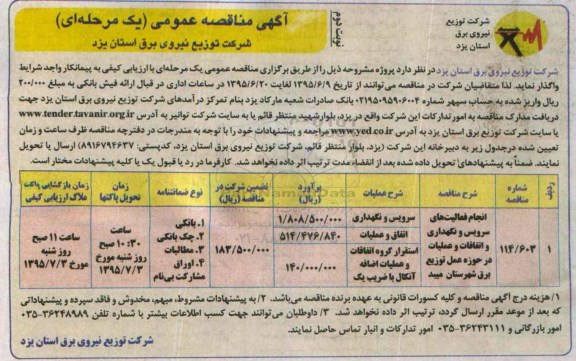 آگهی مناقصه عمومی (یک مرحله‌ای)
شرکت توزیع نیروی برق استان یزد
نوبت دوم
شرکت توزیع
نیروی برق
استان یزد
شرکت توزیع نیروی برق استان یزد در نظر دارد پروژه مشروحه ذیل را از طریق برگزاری مناقصه عمومی یک مرحله‌ای با ارزیابی کیفی به پیمانکار واجد شرایط
واگذار نماید. لذا متقاضیان شرکت در مناقصه می‌توانند از تاریخ ۱۳۹۵/۶/۹ لغایت ۱۳۹۵/۶/۲۰ در ساعات اداری در قبال ارائه فیش بانکی به مبلغ ۲۰۰/۰۰۰
ریال واریز شده به حساب سپهر شماره ۰۲۱۹۵۰۹۵۹۰۶۰۰۴ بانک صادرات شعبه مارکاد یزد بنام تمرکز درآمدهای شرکت توزیع نیروی برق استان یزد جهت
دریافت مدارک مناقصه به امور تدارکات این شرکت واقع در یزد، بلوار شهید منتظر قائم یا به سایت شرکت توانیر به آدرس www.tender.tavanir.org.ir
یا سایت شرکت توزیع برق استان یزد به آدرس www.yed.co.ir مراجعه و پیشنهادات خود را با توجه به مندرجات در دفترچه مناقصه ظرف ساعت و زمان
تعیین شده درجدول زیر به دبیرخانه این شرکت (یزد، بلوار منتظر قائم، شرکت توزیع نیروی برق استان یزد، کدپستی: ۸۹۱۶۷۹۴۶۳۷) ارسال یا تحویل
نمایند. ضمناً به پیشنهادهای تحویل داده شده بعد از انقضاء مدت ترتیب اثر داده نخواهد شد. کارفرما در رد یا قبول یک یا کلیه پیشنهادات مختار است.
ردیف
شماره مناقصه
شرح مناقصه
شرح عملیات
برآورد (ریال)
تضمین شرکت در مناقصه (ریال)
نوع ضمانتنامه
زمان تحویل پاکتها
زمان بازگشایی پاکت ملاک ارزیابی کیفی
۱
۱۱۴/۶۰۳
انجام فعالیت‌های
سرویس و نگهداری
و اتفاقات و عملیات
در حوزه عمل توزیع
برق شهرستان میبد
سرویس و نگهداری
۱/۸۰۸/۵۰۰/۰۰۰
اتفاق و عملیات
۵۱۴/۴۷۶/۸۴۰
استقرار گروه اتفاقات
و عملیات اضافه
آنکال با ضریب یک
۱۴۰/۰۰۰/۰۰۰
۱۸۳/۵۰۰/۰۰۰
۱. بانکی
۲. چک بانکی
۳. مطالبات
۴. اوراق
مشارکت بی‌نام
ساعت
۱۰:۳۰ صبح
روز شنبه مورخ
۱۳۹۵/۷/۳
ساعت ۱۱ صبح
روز شنبه
مورخ ۱۳۹۵/۷/۳
۱/ هزینه درج آگهی مناقصه و کلیه کسورات قانونی به عهده برنده مناقصه می‌باشد. ۲/ به پیشنهادات مشروط، مبهم، مخدوش و فاقد سپرده و پیشنهاداتی
که بعد از موعد مقرر ارسال گردد، ترتیب اثر داده نخواهد شد. ۳/ داوطلبان می‌توانند جهت کسب اطلاعات بیشتر با شماره تلفن ۳۶۲۴۸۹۸۹-۰۳۵
امور بازرگانی و ۳۶۲۴۳۱۱۱-۰۳۵ امور تدارکات و انبار تماس حاصل نمایند.
شرکت توزیع نیروی برق استان یزد